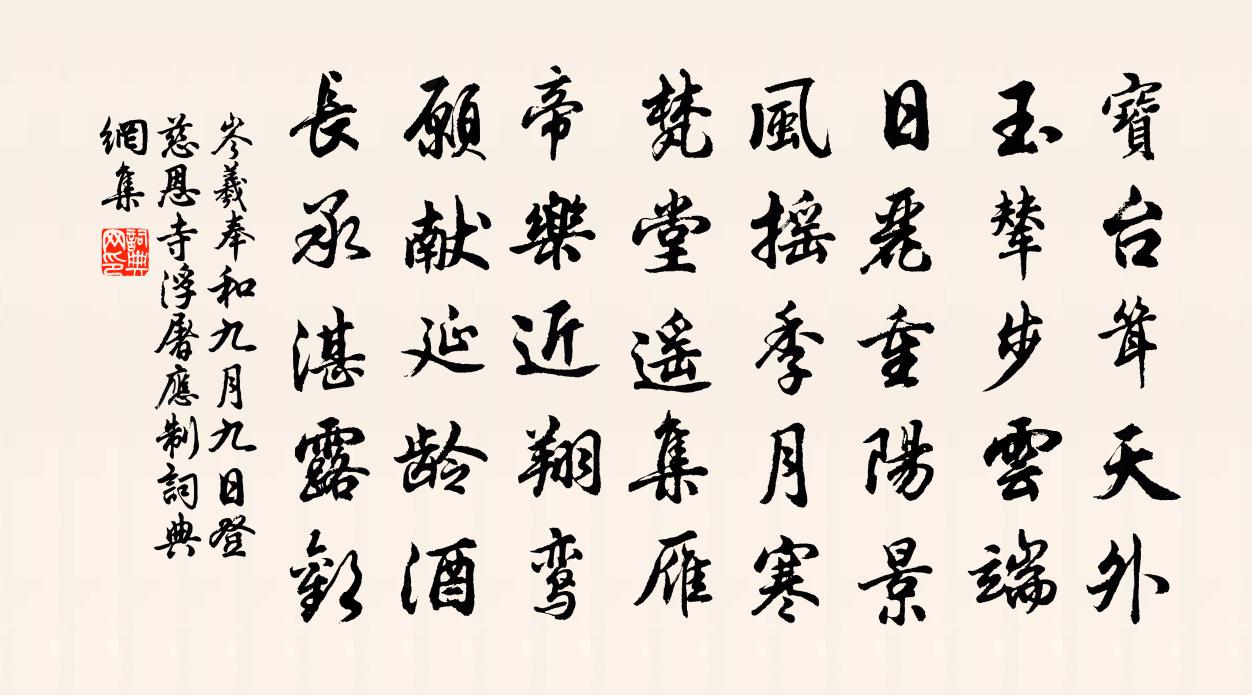 寶台耸天外
玉輦步雲端
日麗重陽景
風摇季月寒
梵堂遥集雁
帝樂近翔鸾
願献延龄酒
長承湛露歡
岑羲奉和九月九日登
慈恩寺浮屠應制詞典
網集
詞典网印